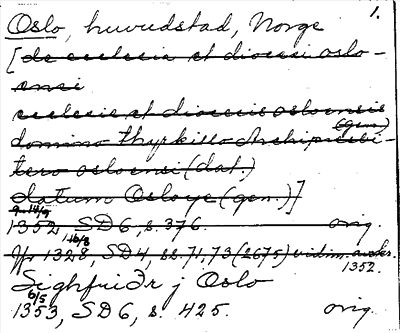 1.
Oslo, huvudstad, Norge
[de ecclesia et diocesi oslo-
ensi
ecclesie et diocesis osloensis
(gen.)
domino Thyrkillo Archipresbi-
tero osloensi (dat.)
datum Osloye (gen.)]
9-14/9
1352 SD6, s. 376. orig.
16/8
1328, SD4, ss. 71, 73 (2675) vidim.
1352.
Sighfriðr j Oslo
6/5
1353, SD6, s. 425. orig.